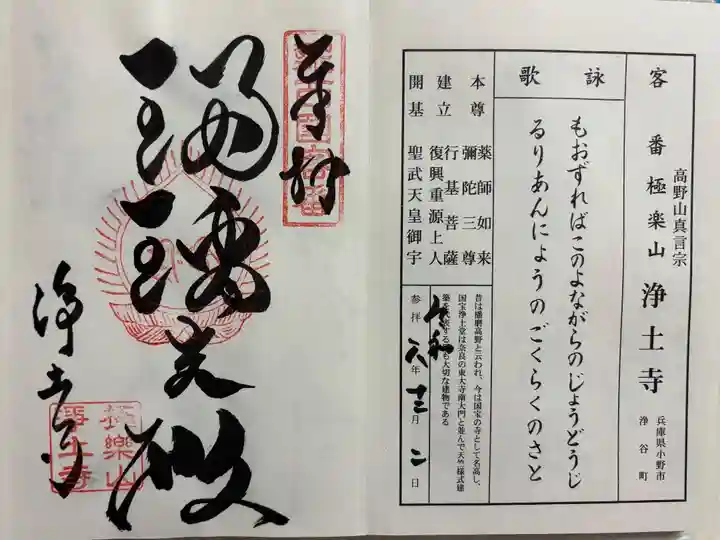 客番 極楽山 浄土寺
高野山真言宗
兵庫県小野市
浄谷町
詠歌
もおずればこのよながらのじょうどうじ
るりあんにょうのごくらくのさと
本尊 薬師如来
彌陀三尊
建立 行基菩薩
復興重源上人
開基 聖武天皇御宇
昔は播磨高野と云われ、今は国宝の寺として名高し、
国宝浄土堂は奈良の東大寺南大門と並んで天竺様式建
築を代表する最も大切な建物である
参拝 令和六年十二月二日
奉拝
瑠璃光殿
浄土寺
極楽山
浄土寺